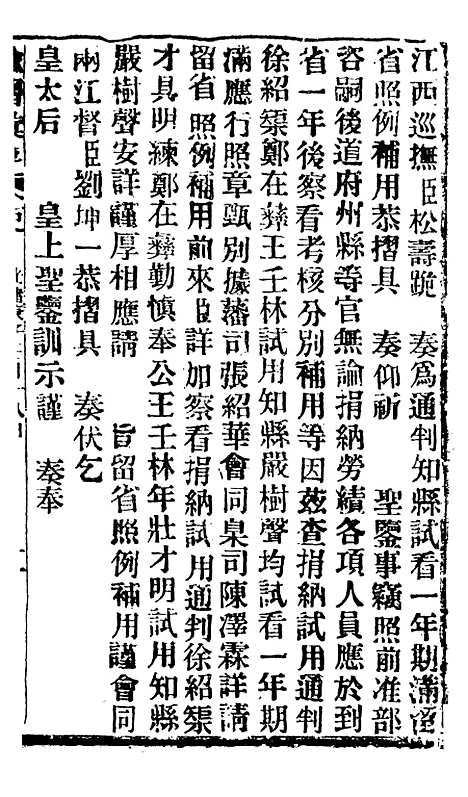 江西巡撫臣松壽跪　奏爲通判知縣試看一年期滿留
省照例補用恭摺具　奏仰祈　聖鑒事竊照前准部
咨嗣後道府州縣等官無論捐納勞績各項人員應於到
省一年後察看考核分別補用等因茲查捐納試用通判
徐紹榘鄭在彝王壬林試用知縣嚴樹聲均試看一年期
滿應行照章甄別據藩司張紹華會同臬司陳澤霖詳請
留省照例補用前來臣詳加察看捐納試用通判徐紹榘
才具明練鄭在彝勤慎奉公王壬林年壯才明試用知縣
嚴樹聲安詳謹厚相應請　旨留省照例補用謹會同
兩江督臣劉坤一恭摺具　奏伏乞
皇太后　皇上聖鑒訓示謹　奏奉